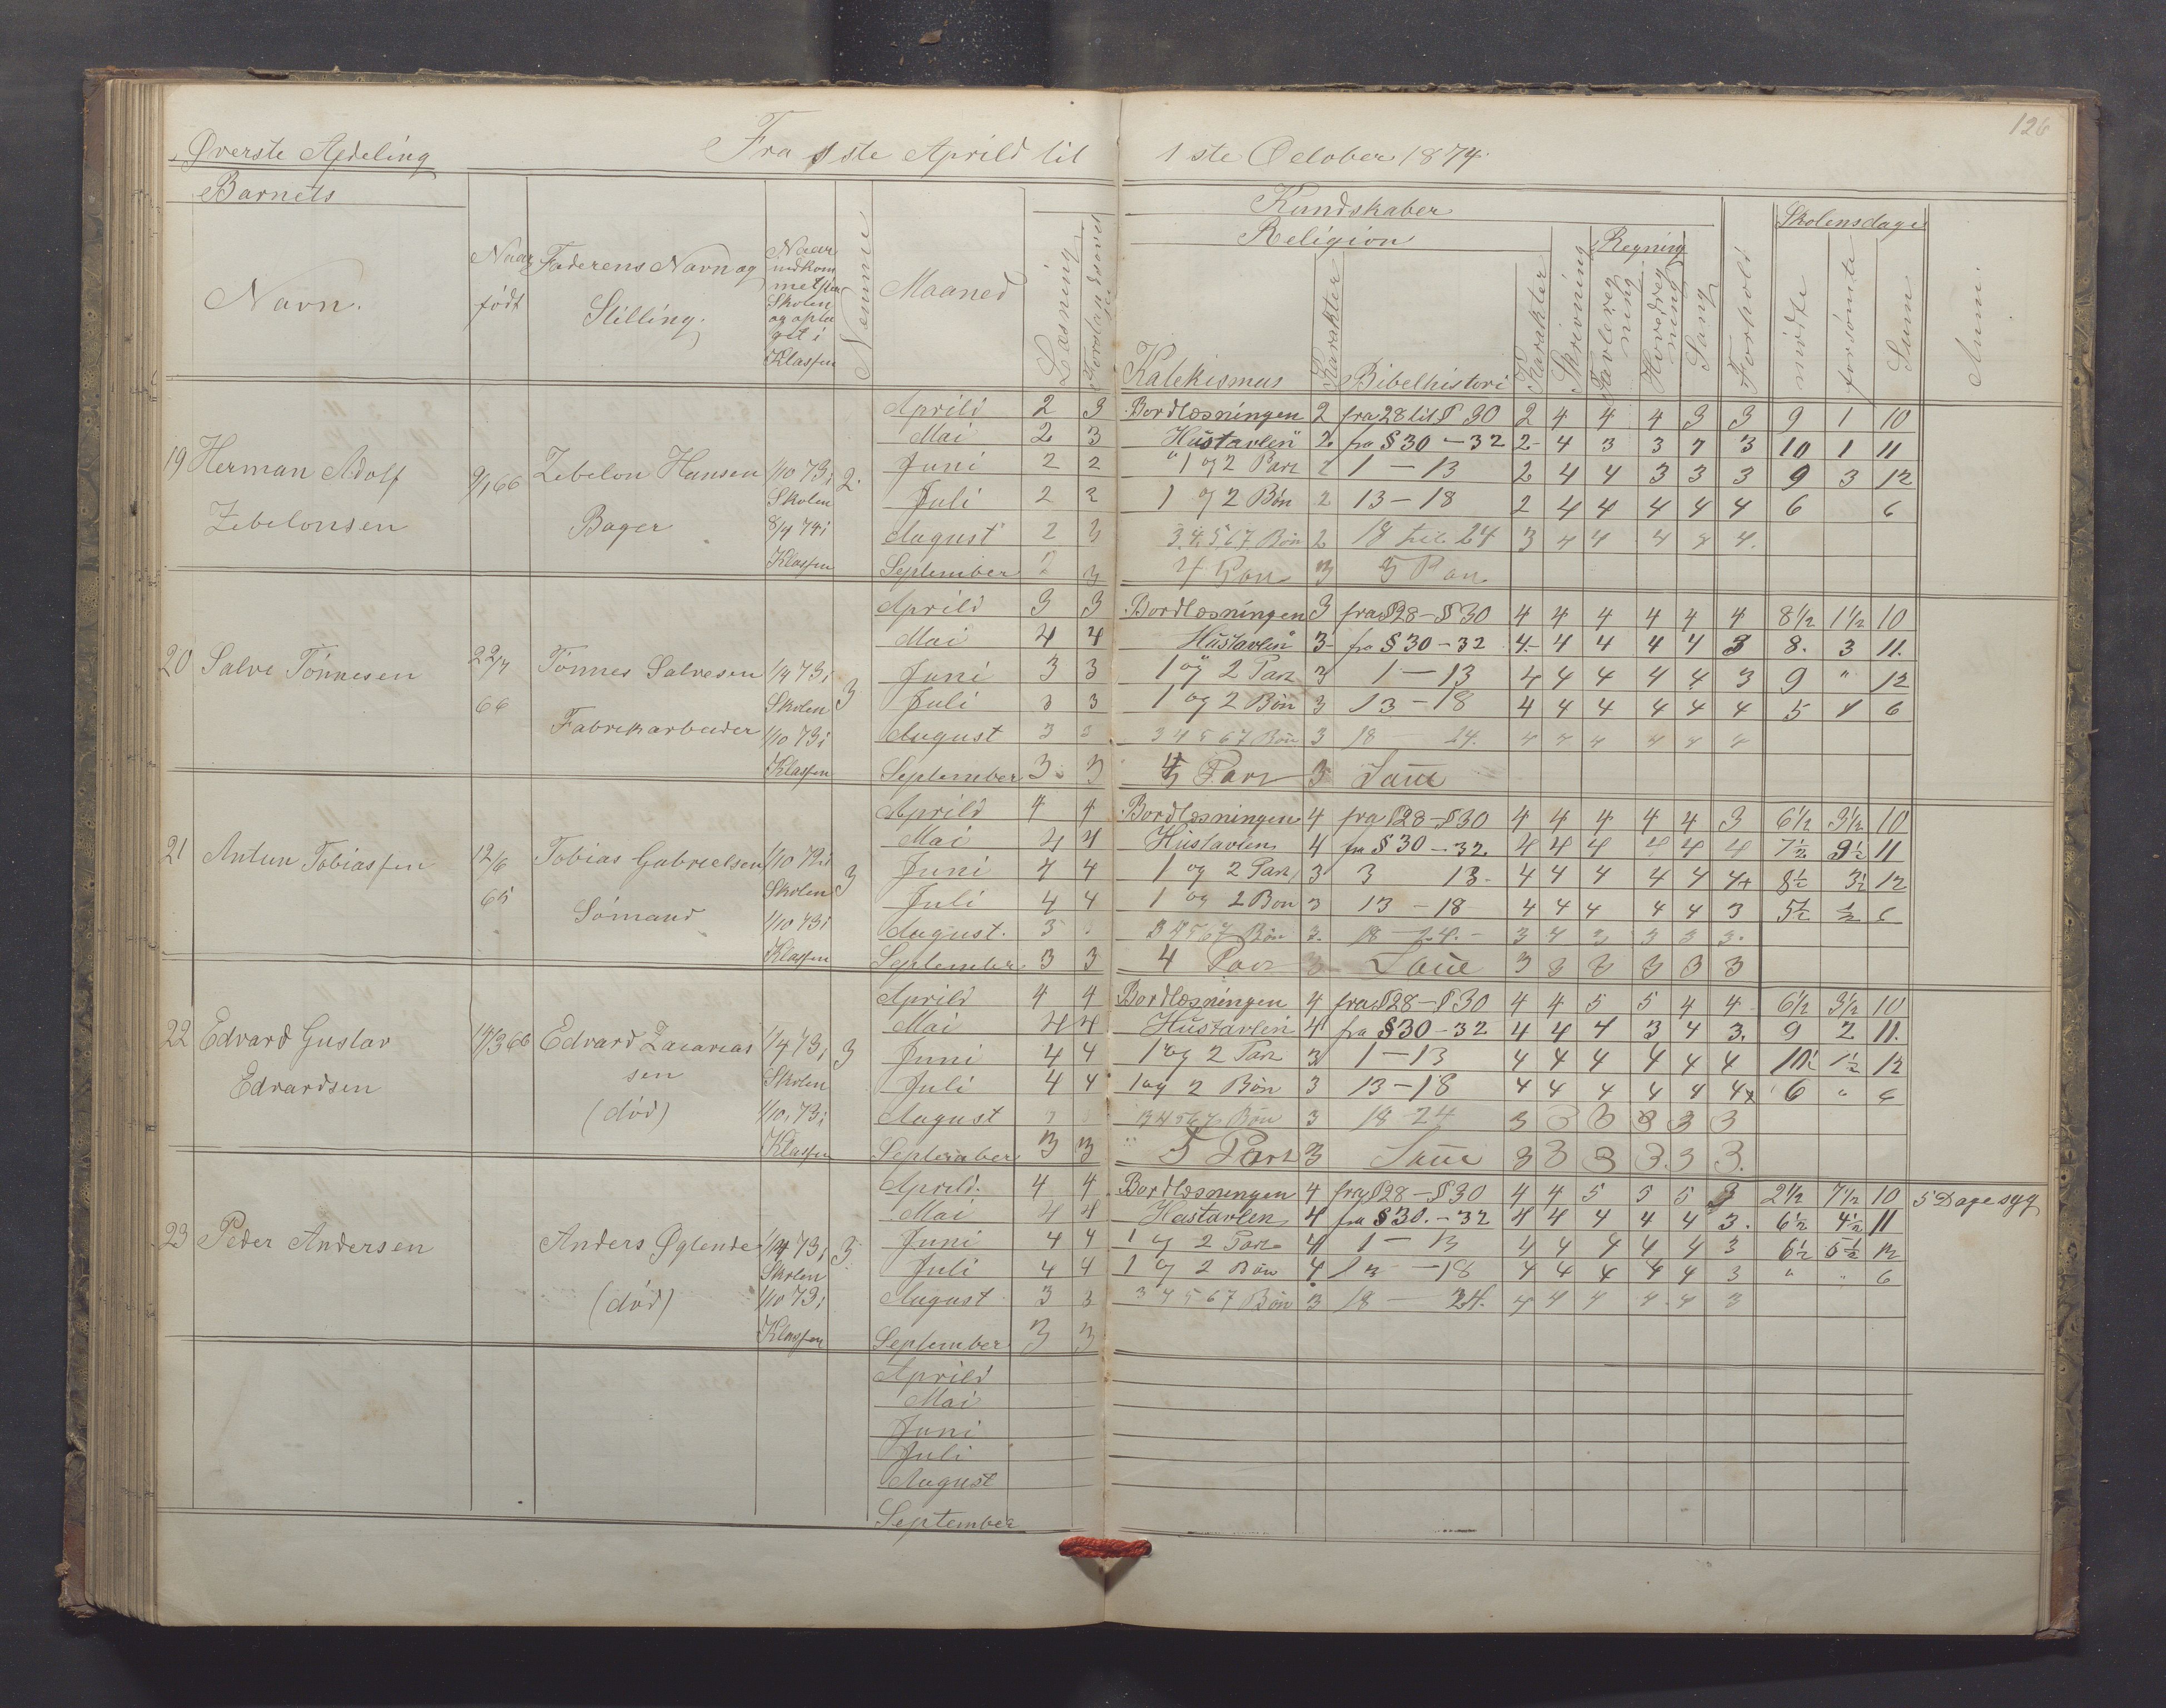 126
Øverste Afdeling Fra 1ste Aprild til 1ste October 1874.
Barnets Kundskaber Skolensdage
Religion Regning
Navn. Naar født Faderens Navn og Stilling. Naar indkommet i Skolen og optaget i Klassen Nemme Maaned Læsning Forstandsøvelse Katekismus Karakter Bibelhistori Karakter Skrivning Tavleregning Hovedregning Sang Forhold mødte forsømte Sum Anm.
Aprild 2 3 Bordlæsningen 2 fra 28 til § 30 2 4 4 4 3 3 9 1 10
Mai 2 3 Hustavlen 2 fra § 30 - 32 2 4 3 3 7 3 10 1 11
19 Herman Adolf 9/1 66 Zebelon Hansen 1/10 73 i 2. Juni 2 2 1 og 2 Part 2 1 - 13 2 4 4 3 3 3 9 3 12
Zebelonsen Bager Skolen 8/4 74 i Juli 2 2 1 og 2 Bøn 2 13 - 18 2 4 4 4 4 4 6 6
August 2 3 3. 4. 5. 6. 7 Bøn 2 18 til 24 3 4 4 4 4 4.
Klassen September 2 3 Part 3 5 Part
Aprild 3 3 Bordlæsningen 3 fra § 28 - § 30 4 4 4 4 4 4 8 1/2 1 1/2 10
Mai 4 4 Hustavlen 3 fra § 30 - 32 4 4 4 4 4 3 8. 3 11.
20 Salve Tönnesen 22/7 66 Tönnes Salvesen 1/4 73 i 3 Juni 3 3 1 og 2 Part 3 1 - 13 4 4 4 4 4 3 9 " 12
Fabrikarbeider Skolen Juli 3 3 1 og 2 Bön 3 13 - 18 4 4 4 4 4 4 5 1 6
1/10 73 i August 3 3 3 4 5 6 7 Bön 3 18 24. 4 4 4 4 4 4
Klassen September 3. 3 4 Part 3 Same
Aprild 4 4 Bordlæsningen 4 fra § 28 - § 30 4 4 4 4 4 3 6 1/2 3 1/2 10
Mai 4 4 Hustavlen 4 fra § 30 - 32. 4 4 4 4 4 4 7 1/2 3 1/2 11
21 Antun Tobiassen 12/6 65 Tobias Gabrielsen 1/10 72 i 3 Juni 4 4 1 og 2 Part 3 3 13 - 4 4 4 4 4 4+ 8 1/2 3 1/2 12
Sömand Skolen Juli 4 4 1 og 2 Bön 3 13 - 18 4 4 4 4 4 3 5 1/2 1/2 6
1/10 73 i August. 3 3 4 5 6 7 Bön 3. 18 - 24. - 3 4 3 3 3 3.
Klassen September 3 3 4 Part 3 Same 3 3 3 3 3 3
Aprild 4 4 Bordlæsningen 4 fra § 28 - § 30 4 4 5 5 4 4 6 1/2 3 1/2 10
Mai 4 4 Hustavlen 4 fra § 30 - 32 4 4 4 3 4 3. 9 2 11.
22 Edvard Gustav 14/3 66 Edvard Zacarias 1/4 73 i 3 Juni 4 4 1 og 2 Part 3 1 - 13 4 4 4 4 4 4 10 1/2 1 1/2 12
Edvardsen sen Skolen Juli 4 4 1 og 2 Bön 3 13 - 18 4 4 4 4 4 4x 6 " 6
(död) 1/10. 73 i August 3 4 5 6 7 Bön 3 18 24 3 3 3 3 3 3
Klassen September 3 3 " 5 Part 3 Same 3 3 3 3. 3 3.
Aprild. 4 4 Bordlæsningen 4 fra § 28 - § 30 4 4 5 5 5 3 2 1/2 7 1/2 10 5 Dage syg
Mai 4 4 Hustavlen 4 fra § 30. - 32 4 4 4 4 4 3. 6 1/2 4 1/2 11
23 Peder Andersen Anders Øglende 1/4 73 i 3. Juni 4 4 1 og 2 Part 4 1 - 13 4 4 4 4 4 3 6 1/2 5 1/2 12
(död) Skolen Juli 4 4 1 og 2 Bön 4 13 - 18 4 4 4 4 4 3 " " 6
1/10 73 i August 3 3 3 4 5 6 7 Bön 3 18 - 24. 4 4 4 4 4 3
Klassen September 3 3
Aprild
Mai
Juni
Juli
August
September